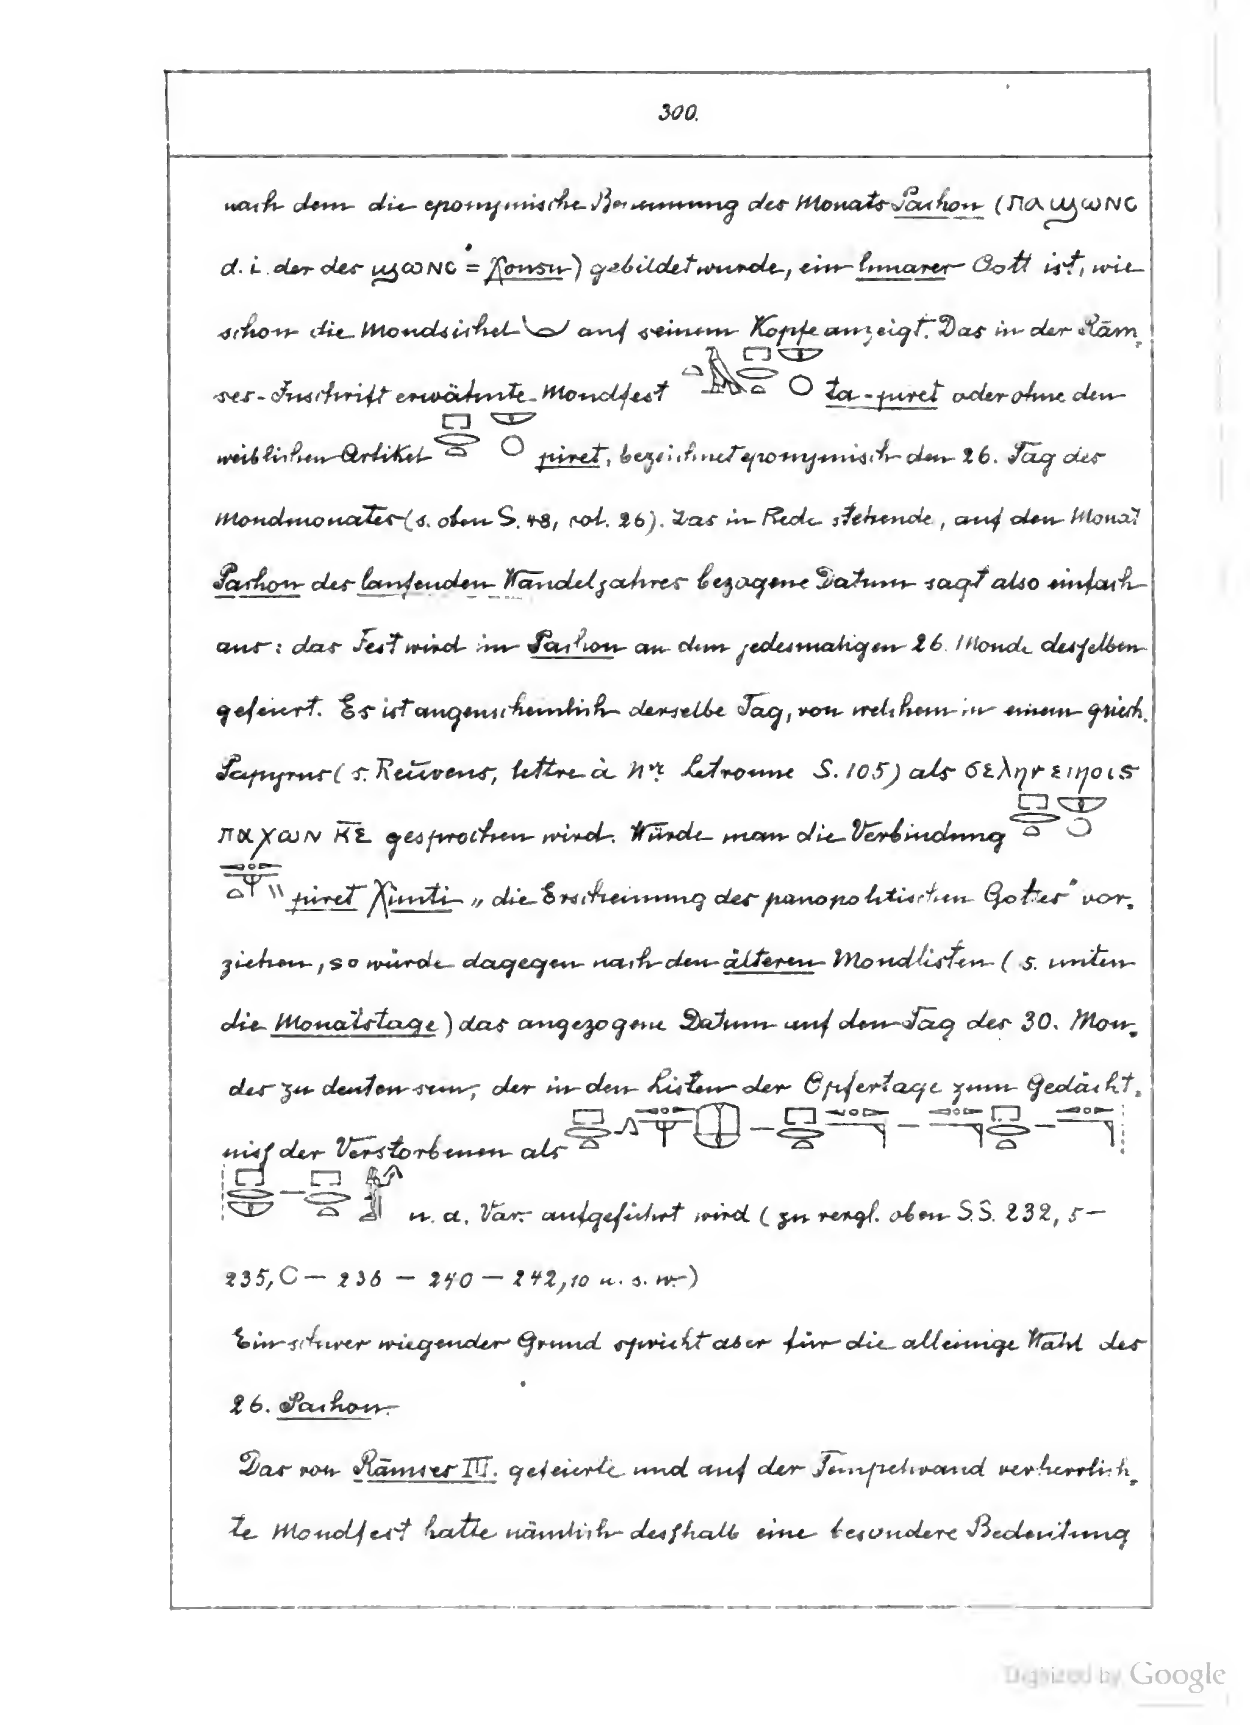 300.
nach dem die eponymische Benennung des Monats Pachon (ⲡⲁϣⲱⲛⲥ
d. i. der des ϣⲱⲛⲥ = Χonsu) gebildet wurde, ein lunarer Gott ist, wie
schon die Mondsichel auf seinem Kopfe anzeigt. Das in der Räm,
ses-Inschrift erwähnte Mondfest ta-piret oder ohne den
weiblichen Artikel piret, bezeichnet eponymisch den 26. Tag des
Mondmonates (s. oben S. 48, col. 26). Das in Rede stehende, auf den Monat
Pachon des laufenden Wandeljahres bezogene Datum sagt also einfach
aus: das Fest wird im Pachon an dem jedesmaligen 26. Monde desselben
gefeiert. Es ist augenscheinlich derselbe Tag, von welchem in einem griech.
Papyrus (s. Reuvens, lettre à Mr. Letronne S. 105) als σεληνεινοις
παχων κε gesprochen wird. Würde man die Verbindung
piret Χimti „die Erscheinung des panopolitischen Gottes" vor,
ziehen, so würde dagegen nach den älteren Mondlisten (s. unten
die Monatstage) das angezogene Datum auf den Tag des 30. Mon,
des zu deuten sein, der in den Listen der Opfertage zum Gedächt,
niß der Verstorbenen als
u. a. Var. aufgeführt wird (zu vergl. oben S.S. 232, 5 —
235, C — 236 — 240 — 242, 10 u. s. w.)
Ein schwer wiegender Grund spricht aber für die alleinige Wahl des
26. Pachon.
Das von Rämses III. gefeierte und auf der Tempelwand verherrlich,
te Mondfest hatte nämlich deßhalb eine besondere Bedeutung
Digitized by Google